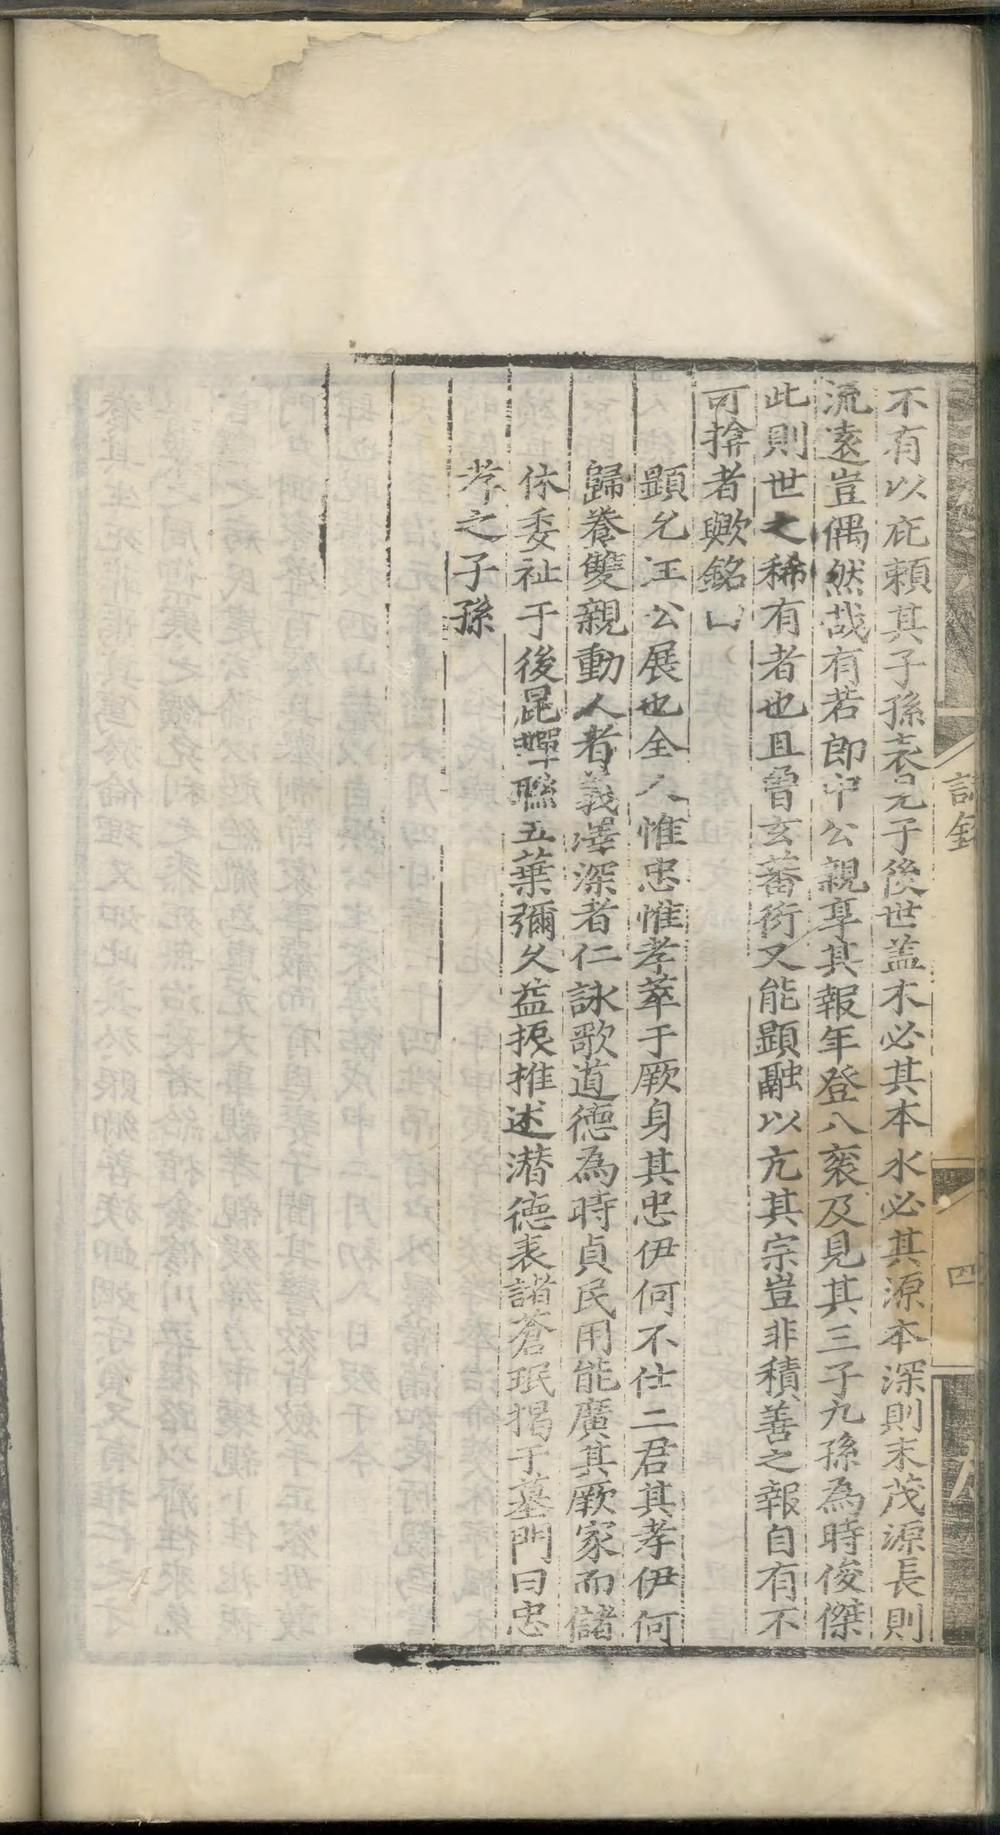 不有以庇賴其子孫表兄子後世盖木必其本水必其源本深則末茂源長則
流遠豈偶然哉有若郎中公親享其報年登八袠及見其三子九孫為時俊傑
此則世之稀有者也且曾玄蕃衍又能顯融以亢其宗豈非積善之報自有不
可揜者歟銘曰
顯允王公展也全人惟忠惟孝萃于厥身其忠伊何不仕二君其孝伊何
歸養雙親動人者義澤深者仁詠歌道德為時貞民用能廣其厥家而儲
休委祉于後昆蟬聯五葉彌久益振推述潜德表諸蒼珉揭于墓門曰忠
孝之子孫
四